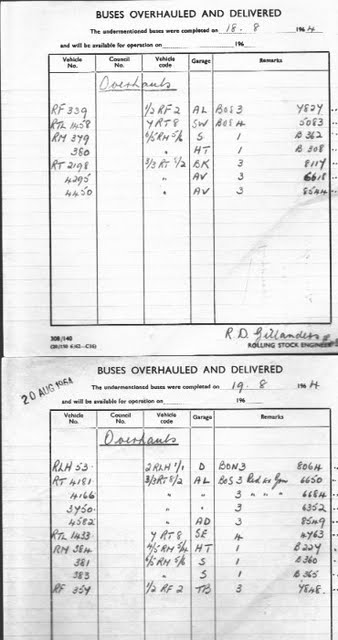 BUSES OVERHAULED AND DELIVERED
The undermentioned buses were completed on 18.8 1964
and will be available for operation on 196
Vehicle No. Council No. Vehicle code Garage Remarks
Overhauls
RF 339 1/2 RF 2 AL BOS 3 4827
RTL 1458 4 RT 8 SW BOS 4 5083
RM 379 4/5 RM 5/6 S 1 B 362
380 " HT 1 B 308
RT 2198 3/3 RT 5/2 BK 3 8117
4295 " AV 3 6618
4450 " AV 3 8544
308/140
R.D. Gillanders
ROLLING STOCK ENGINEER
20 AUG 1964
BUSES OVERHAULED AND DELIVERED
The undermentioned buses were completed on 19.8 1964
and will be available for operation on 196
Vehicle No. Council No. Vehicle code Garage Remarks
Overhauls
RLH 53 2 RLH 1/1 D BON 3 8064
RT 4181 3/3 RT 8/2 AL BOS 3 Red ex Grn 6650
4166 " " 3 " " " 6684
3750 " " 3 6352
4582 " AD 3 8549
RTL 1433 4 RT 8 SE 4 4763
RM 384 4/5 RM 5/4 HT 1 B 227
381 4/5 RM 5/6 S 1 B 360
383 " S 1 B 365
RF 357 1/2 RF 2 TB 3 4848